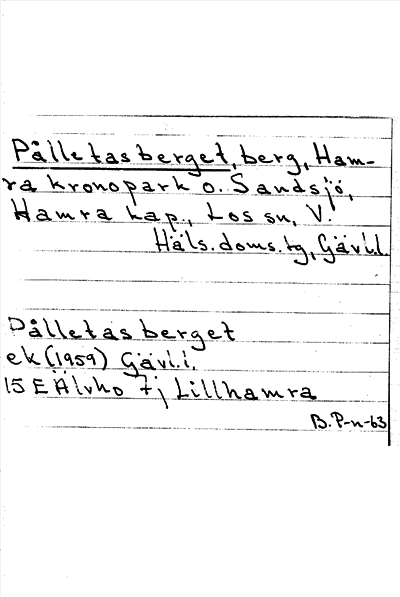 Pålletasberget, berg, Ham-
ra kronopark o. Sandsjö,
Hamra kap., Los sn, V.
Häls. doms. tg, Gävl.l.
Pålletasberget
ek (1959) Gävl.l.
15 E Älvho 7j Lillhamra
B. P-n-63